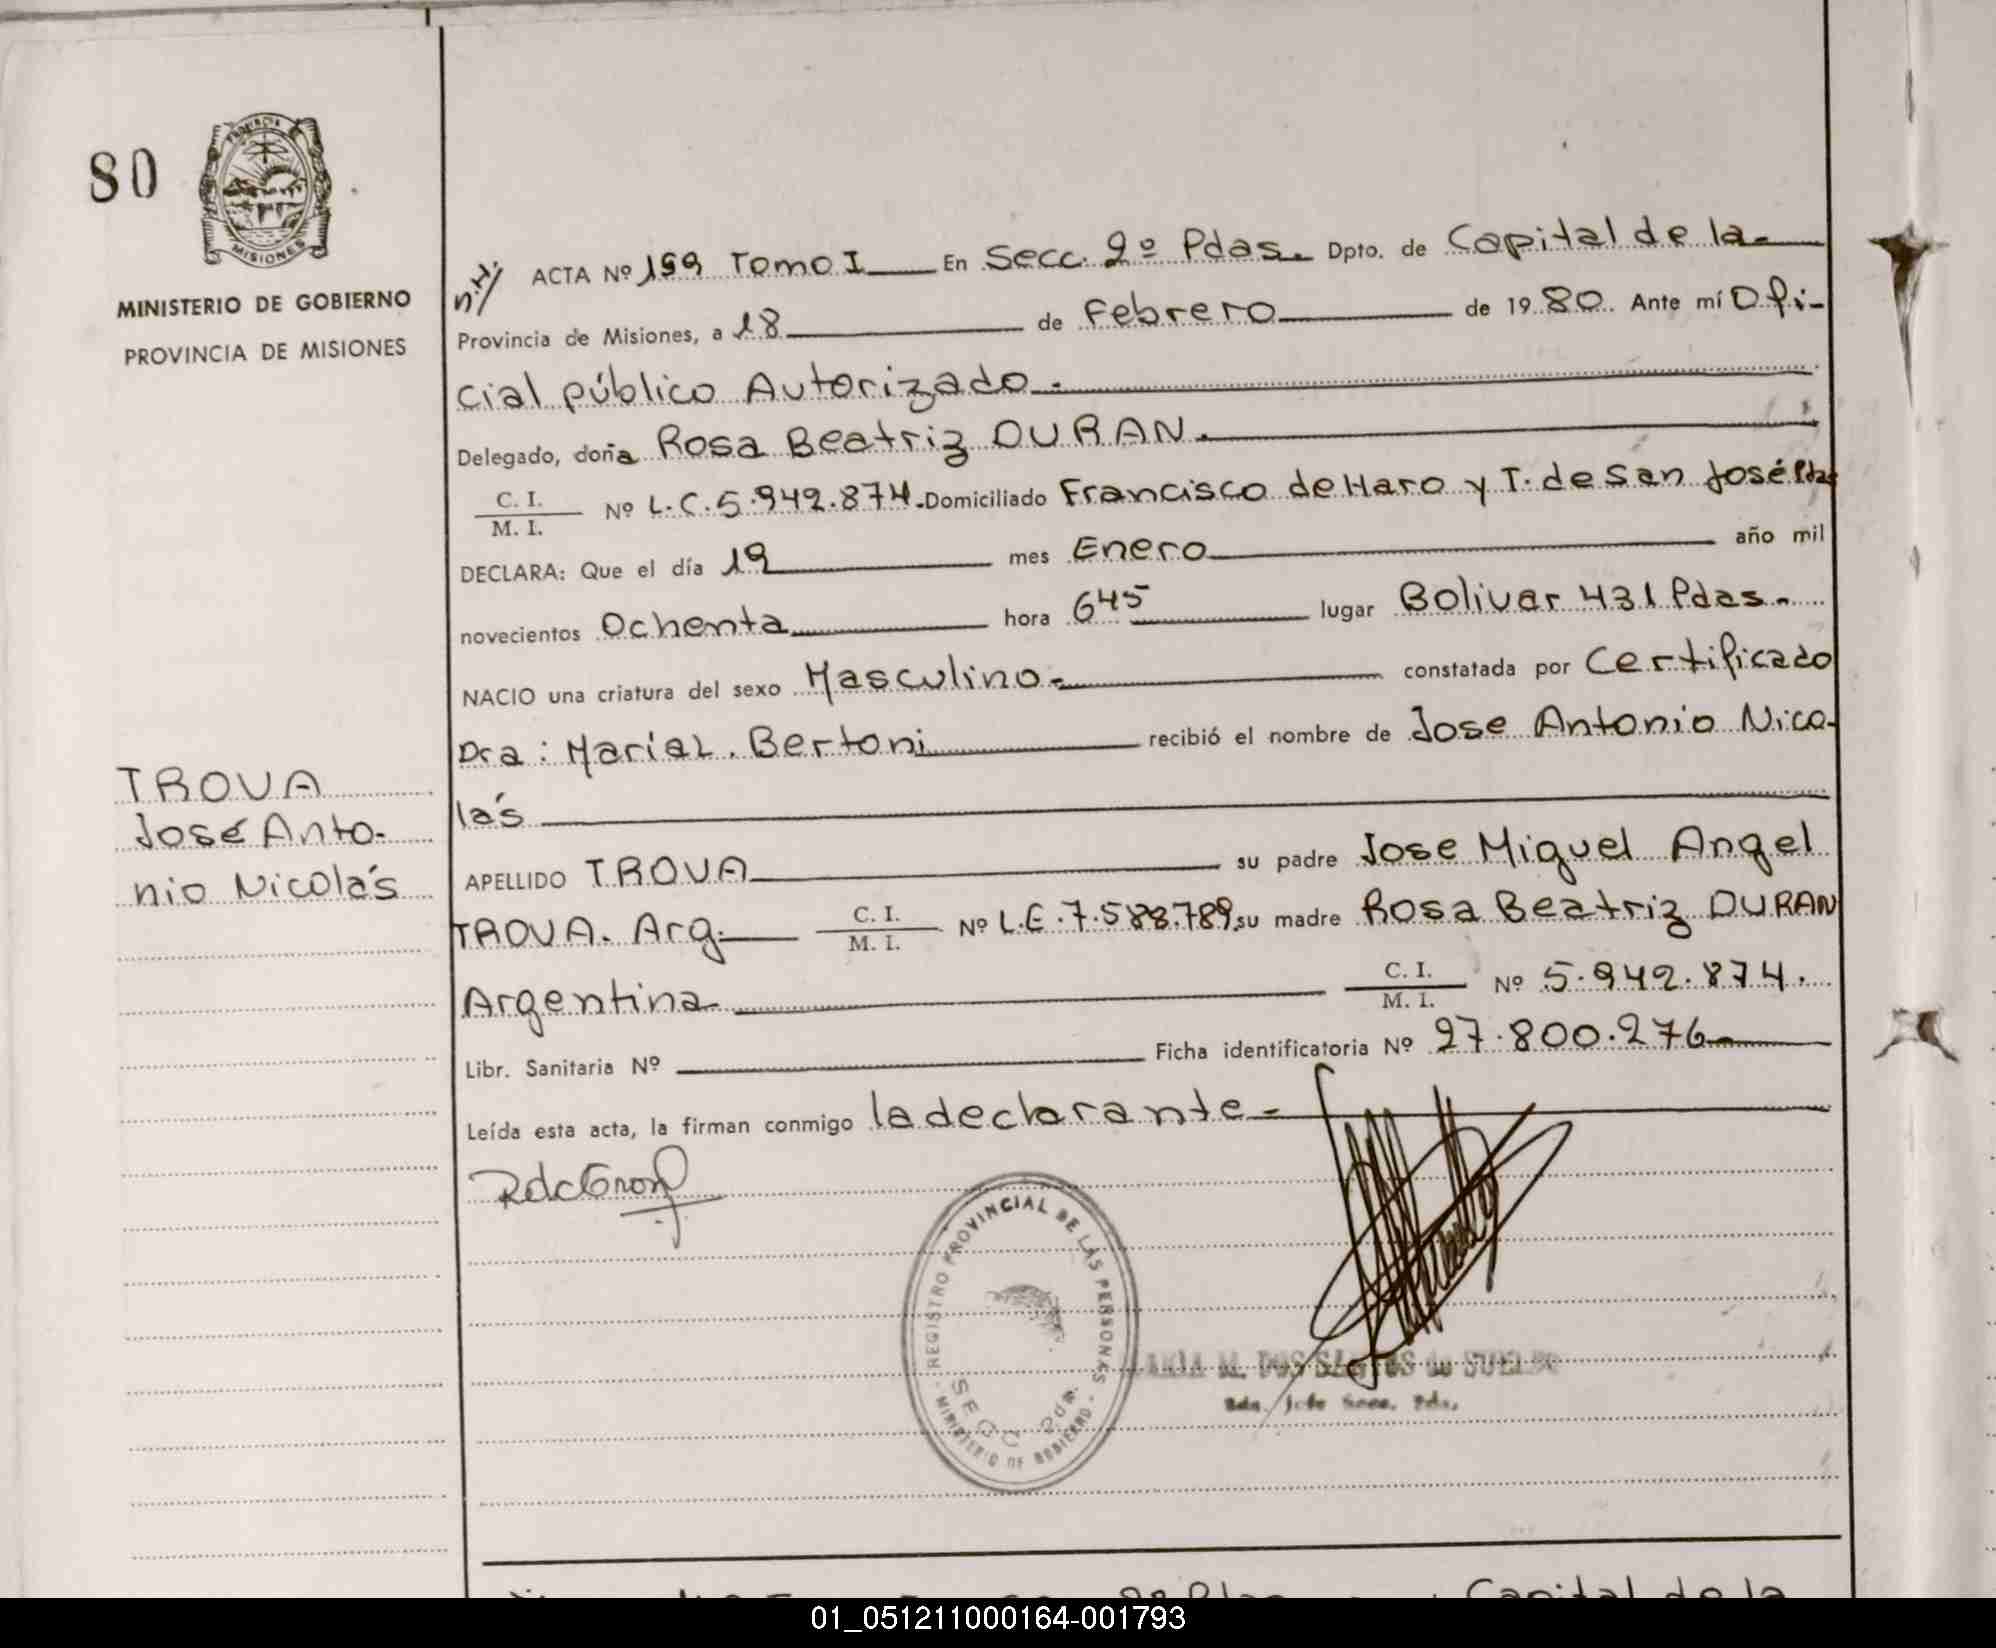 80
PROVINCIA
MISIONES
MINISTERIO DE GOBIERNO
PROVINCIA DE MISIONES
ACTA Nº 199 Tomo I En Secc. 2º Pdas. Dpto. de Capital de la
Provincia de Misiones, a 18 de Febrero de 1980. Ante mí Ofi-
cial público Autorizado.
Delegado, doña Rosa Beatriz DURAN.
C. I.
M. I. Nº L.C. 5.942.874. Domiciliado Francisco de Haro y T. de San José Pdas
DECLARA: Que el día 19 mes Enero año mil
novecientos Ochenta hora 645 lugar Bolivar 431 Pdas.
NACIO una criatura del sexo Masculino. constatada por Certificado
Dra: María L. Bertoni recibió el nombre de Jose Antonio Nico-
lás
TROVA
José Anto-
nio Nicolás
APELLIDO TROVA su padre Jose Miguel Angel
TROVA. Arg. C. I.
M. I. Nº L.E. 7.588.789, su madre Rosa Beatriz DURAN
Argentina C. I.
M. I. Nº 5.942.874.
Libr. Sanitaria Nº Ficha identificatoria Nº 27.800.276
Leída esta acta, la firman conmigo la declarante
REGISTRO PROVINCIAL DE LAS PERSONAS
MINISTERIO DE GOBIERNO
SECC 2da
M. DOS SANTOS de
Capital de la
01_051211000164-001793